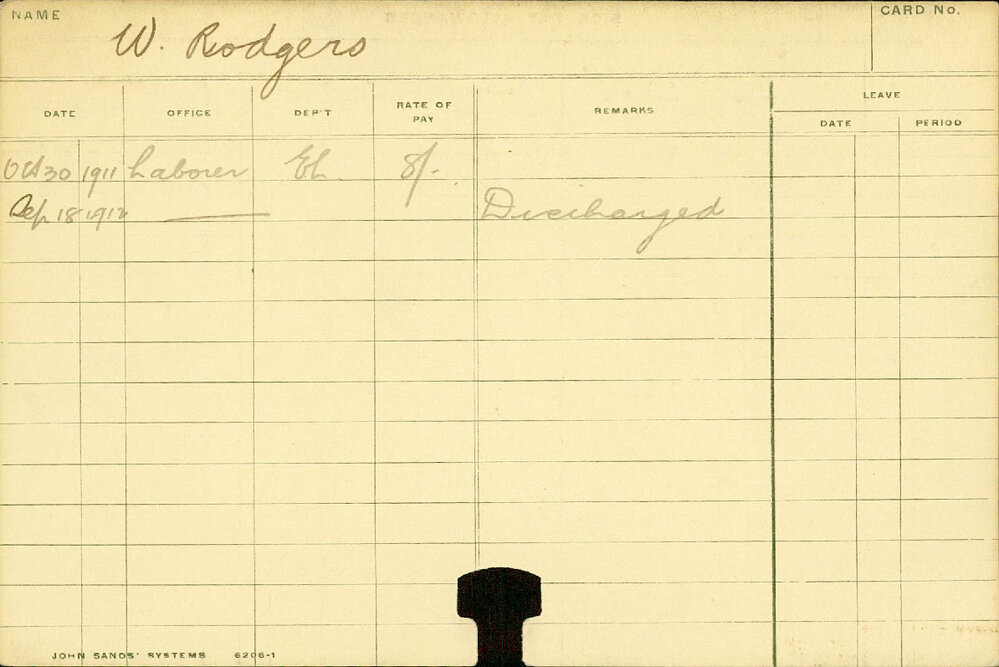 NAME
CARD No.
W. Rodgers
DATE OFFICE DEP'T RATE OF PAY REMARKS LEAVE
DATE PERIOD
Oct 30 1911 Laborer El. 8/-.
Sep 18 1912 — Discharged
JOHN SANDS' SYSTEMS 6206-1